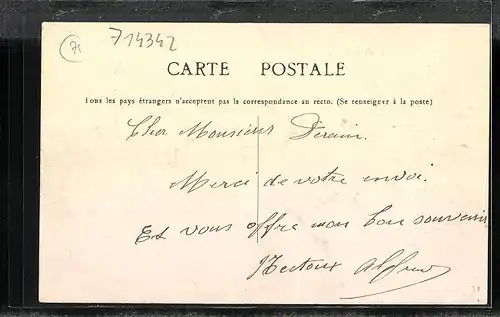 71
714342
CARTE POSTALE
Tous les pays étrangers n'acceptent pas la correspondance au recto. (Se renseigner à la poste)
Cher Monsieur Derain.
Merci de votre envoi.
Et vous offre mon bon souvenir
Alfred